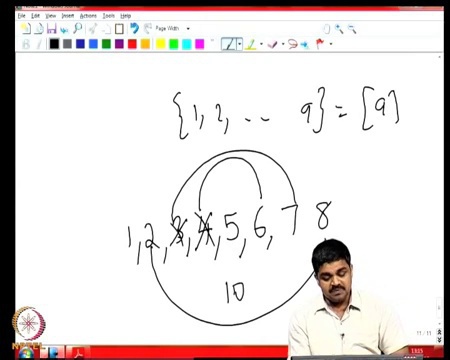 File Edit View Insert Actions Tools Help
Page Width
{1, 2, .. 9} = [9]
1, 2, 3, 4, 5, 6, 7 8
10
NPTEL
11 / 11